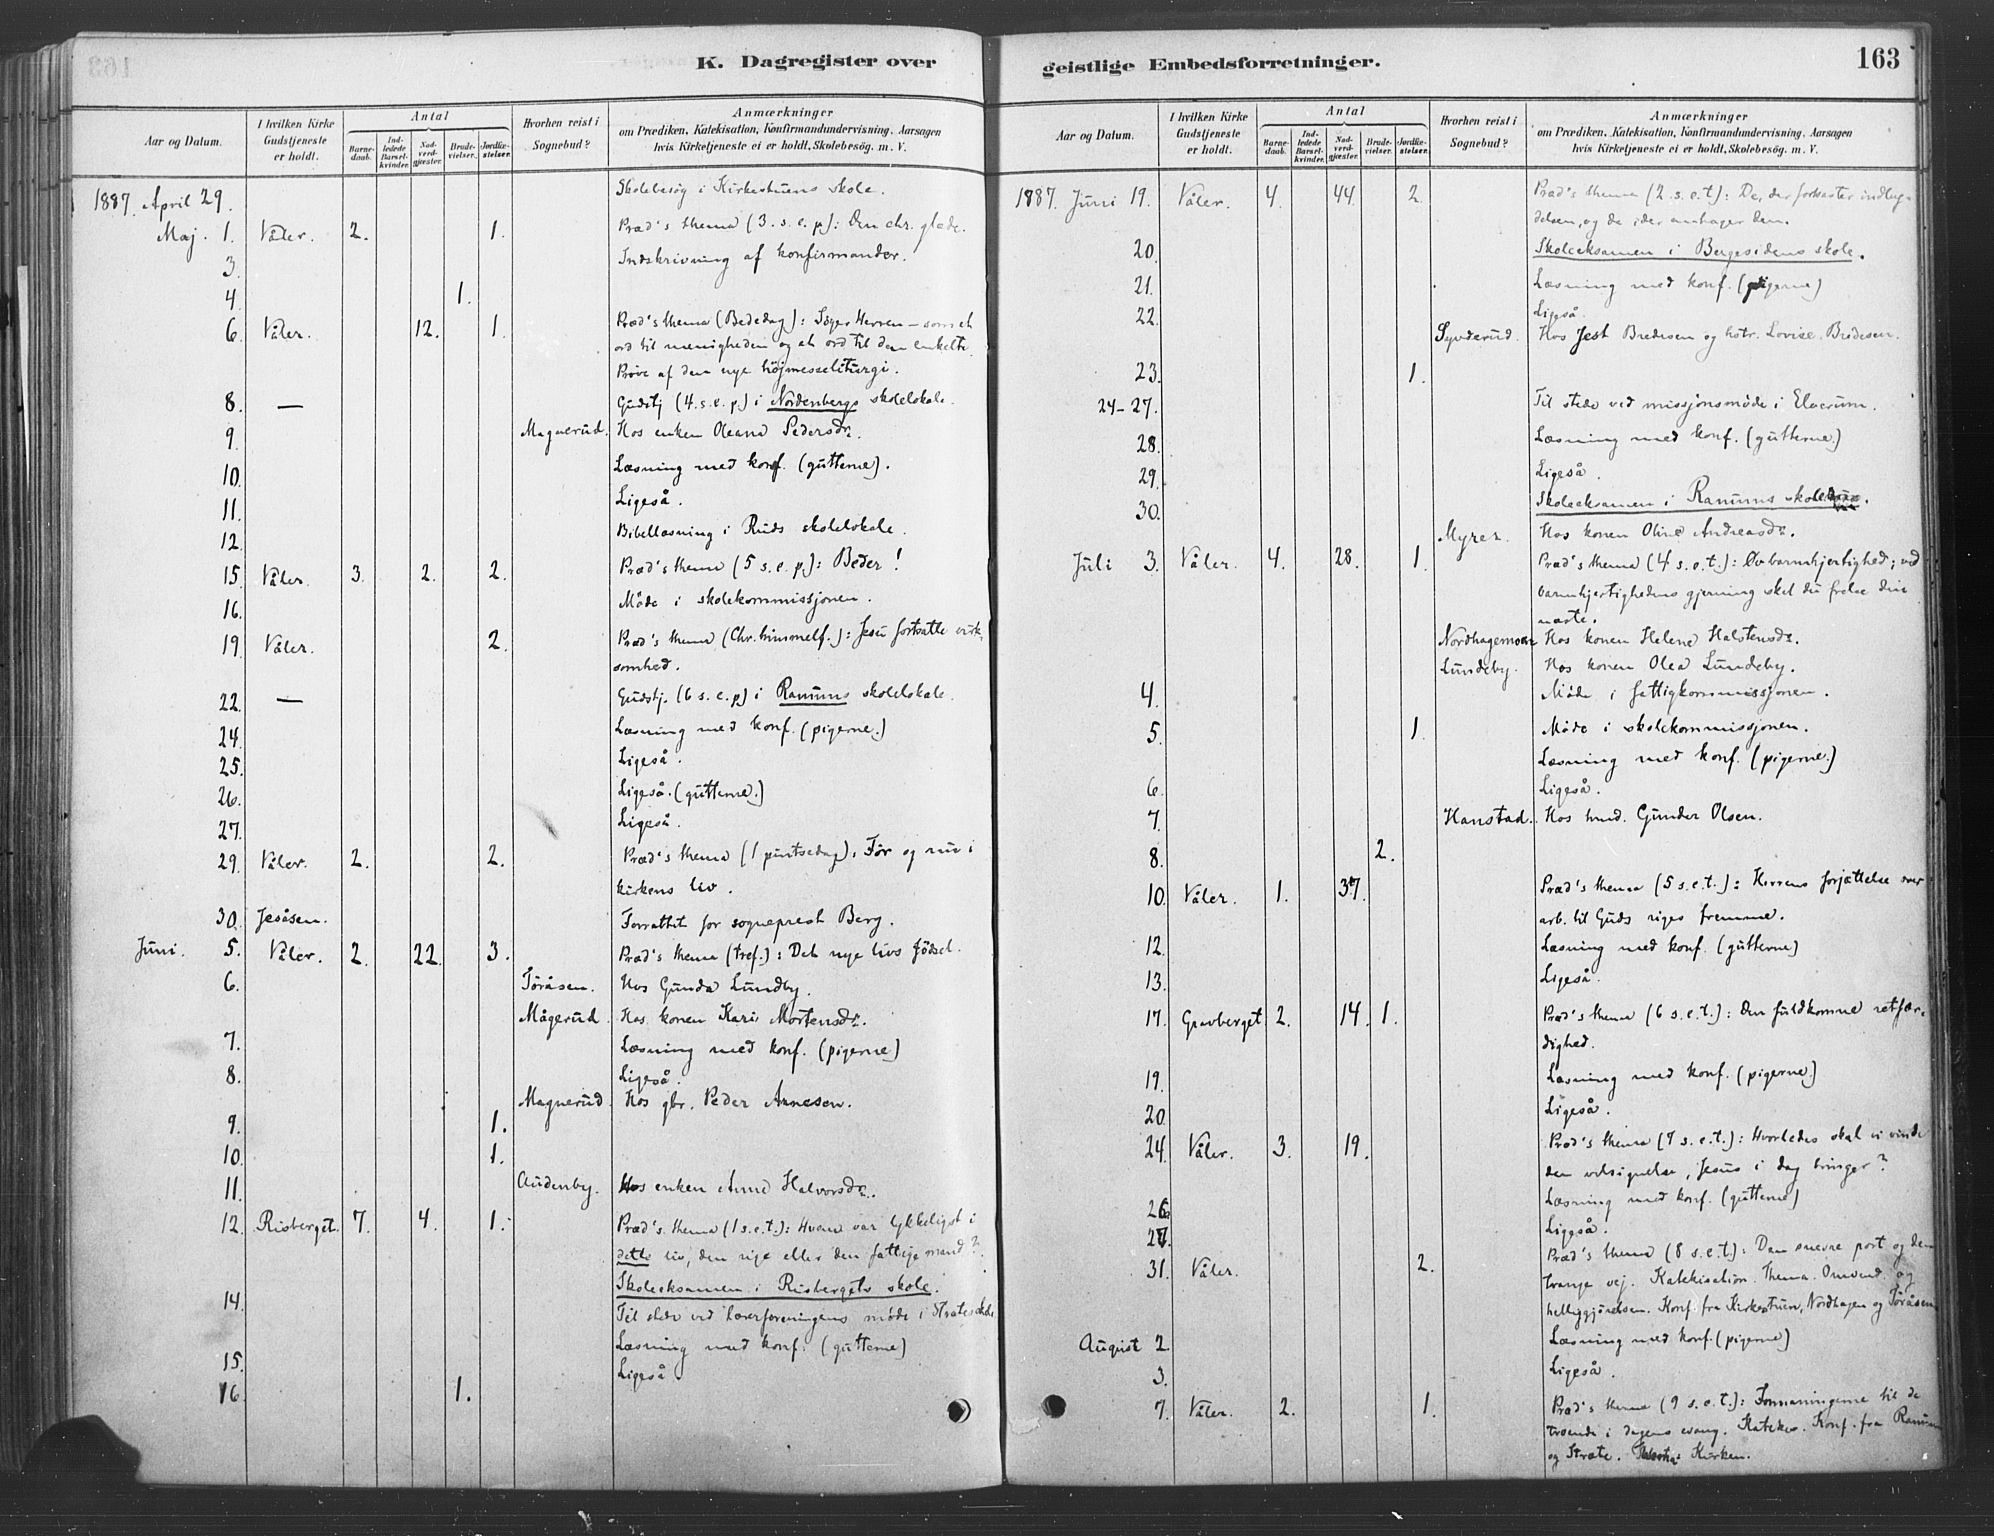 K. Dagregister over
geistlige Embedsforretninger.
163
Aar og Datum.
I hvilken Kirke Gudstjeneste er holdt.
Antal
Barne-daab.
Ind-ledede Barsel-kvinder.
Nad-verd-gjæster.
Brude-vielser.
Jordfæ-stelser.
Hvorhen reist i Sognebud?
Anmærkninger
om Prædiken, Katekisation, Konfirmandundervisning, Aarsagen
hvis Kirketjeneste ei er holdt, Skolebesøg. m. V.
1887. April 29. Skolebesøg i Kirkestuens skole.
Maj. 1. Våler. 2. 1. Præd's thema (3. s. e. p.): Den chr. glæde.
3. Indskrivning af konfirmander.
4. 1.
6. Våler. 12. 1. Præd's thema (Bededag): Søger Herren – som et
ord til menigheden og et ord til den enkelte.
Prøve af den nye höjmesseliturgi.
8. — Gudstj (4. s. e. p.) i Nordenbergs skolelokale.
9. Magnerud. Hos enken Oleana Pedersdr.
10. Læsning med konf. (gutterne).
11. Ligeså.
12. Bibellæsning i Ruds skolelokale.
15. Våler. 3. 2. 2. Præd's thema (5 s. e. p.): Beder!
16. Möde i skolekommissjonen.
19. Våler. 2. Præd's thema (Chr. himmelf.): Jesu fortsatte virk-
somhed.
22. — Gudstj. (6 s. e. p.) i Ranums skolelokale.
24. Læsning med konf. (pigerne.)
25. Ligeså.
26. Ligeså. (gutterne.)
27. Ligeså.
29. Våler. 2. 2. Præd's thema (1 pintsedag). Før og nu i
kirkens liv.
30. Jesåsen. Forrettet for sogneprest Berg.
Juni. 5. Våler. 2. 22. 3. Præd's thema (tref.): Det nye livs fødsel.
6. Töråsen. Hos Gunda Lundby.
Mågerud. Hos konen Kari Mortensdr.
7. Læsning med konf. (pigerne)
8. Ligeså.
Magnerud. Hos gbr. Peder Arnesen.
9. 1.
10. 1.
11. Audenby. Hos enken Anne Halvorsdr.
12. Risberget. 7. 4. 1. Præd's thema (1 s. e. t.): Hvem var lykkeligst i
dette liv, den rige eller den fattige mand?
Skoleeksamen i Risbergets skole.
14. Til stede ved lærerforeningens möde i Strateskole
Læsning med konf. (gutterne)
15. Ligeså
16. 1.
Aar og Datum.
I hvilken Kirke Gudstjeneste er holdt.
Antal
Barne-daab.
Ind-ledede Barsel-kvinder.
Nad-verd-gjæster.
Brude-vielser.
Jordfæ-stelser.
Hvorhen reist i Sognebud?
Anmærkninger
om Prædiken, Katekisation, Konfirmandundervisning, Aarsagen
hvis Kirketjeneste ei er holdt, Skolebesøg. m. V.
1887. Juni 19. Våler. 4. 44. 2. Præd's thema (2. s. e. t.): De, der forkaster indby-
delsen, og de, der antager den.
20. Skoleeksamen i Bergesidens skole.
21. Læsning med konf. (pigerne)
22. Ligeså.
Synderud. Hos Jest Bredesen og hstr. Lovise Bredesen.
23. 1.
24–27. Til stede ved missjonsmöde i Elverum.
28. Læsning med konf. (gutterne.)
29. Ligeså.
30. Skoleeksamen i Ranums skole.
Myrer. Hos konen Oline Andreasdr.
Juli 3. Våler. 4. 28. 1. Præd's thema (4 s. e. t.): Øv barmhjertighed; ved
barmhjertighedens gjerning skal du frelse din
næste.
Nordhagemoen Hos konen Helene Halstensdr.
Lundeby. Hos konen Olea Lundeby.
4. Möde i fattigkommissjonen.
5. 1. Möde i skolekommissjonen.
Læsning med konf. (pigerne.)
6. Ligeså.
7. Hanstad. Hos hmd. Gunder Olsen.
8. 2.
10. Våler. 1. 37. Præd's thema (5 s. e. t.): Herrens forjættelse over
arb. til Guds riges fremme.
12. Læsning med konf. (gutterne)
13. Ligeså.
17. Gravberget 2. 14. 1. Præd's thema (6 s. e. t.): Den fuldkomne retfær-
dighed.
19. Læsning med konf. (pigerne)
20. Ligeså.
24. Våler. 3. 19. Præd's thema (7 s. e. t.): Hvorledes skal vi vinde
den velsignelse, Jesus i dag bringer?
26. Læsning med konf. (gutterne)
27. Ligeså.
31. Våler. 2. Præd's thema (8 s. e. t.): Den snevre port og den
trange vej. Katekisation. Thema. Omvend. og
helliggjörelsen. Konf. fra Kirkestuen, Nordhagen og Töråsen
August 2. Læsning med konf. (pigerne)
3. Ligeså.
7. Våler. 2. 1. Præd's thema (9 s. e. t.): Formaningerne til de
troende i dagens evang. Katekes. Konf. fra Ranum
og Strate. Kirken.